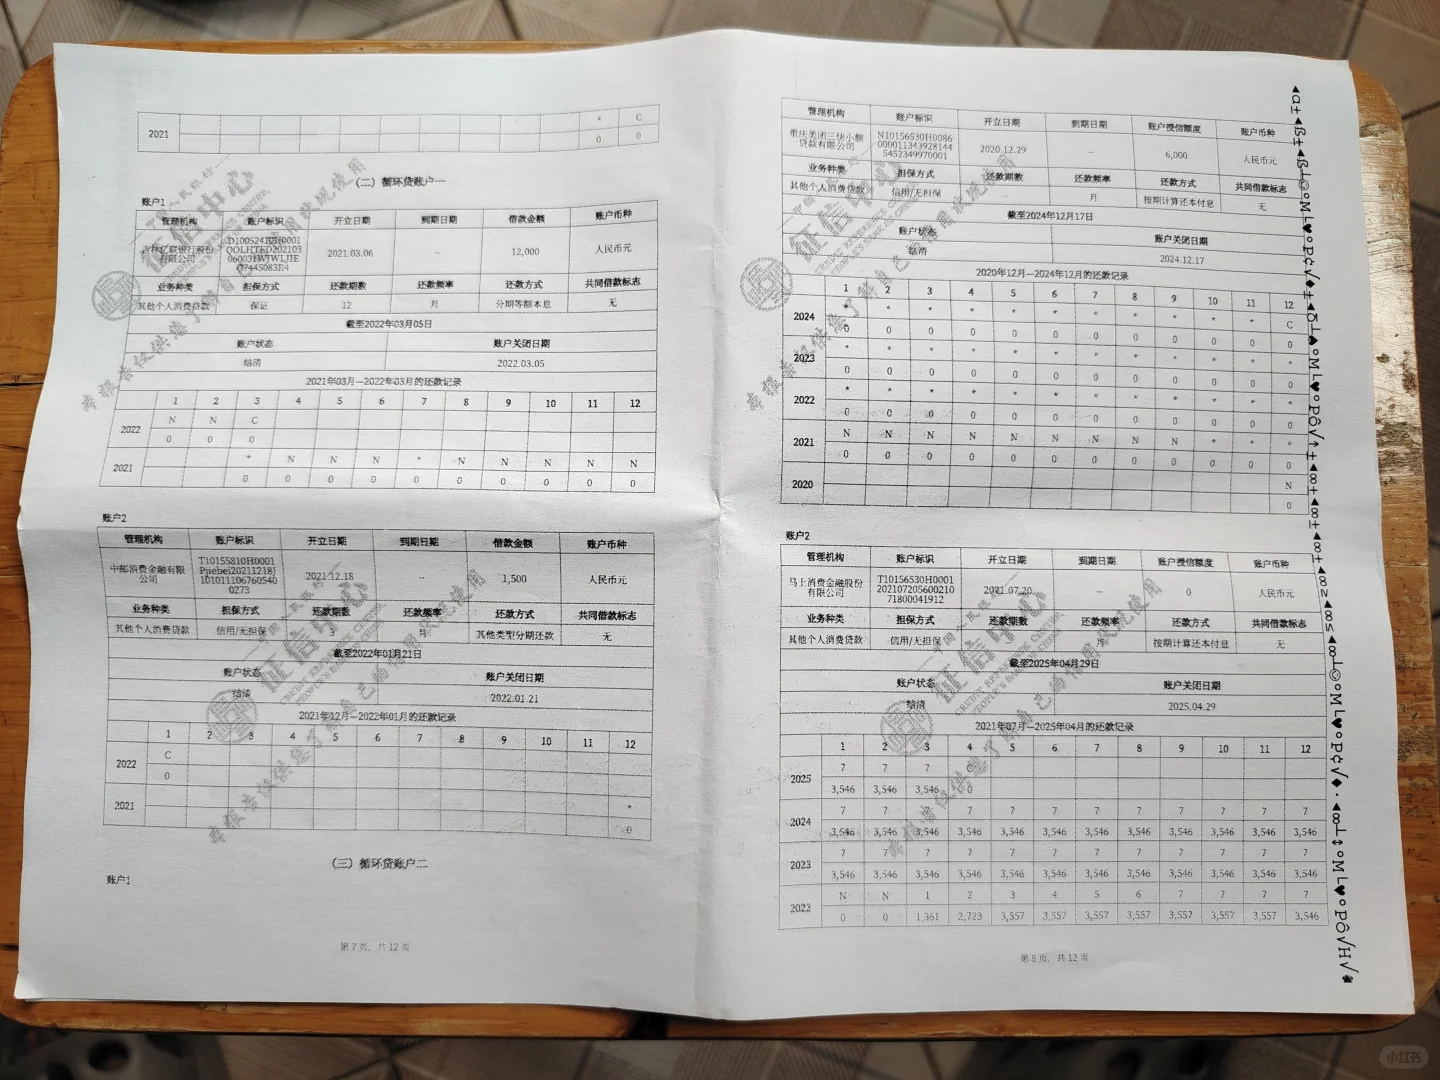 2021 * C
0 0
（二）循环贷账户一
账户1
管理机构 账户标识 开立日期 到期日期 借款金额 账户币种
吉林亿联银行股份有限公司 2021.03.06 -- 12,000 人民币元
业务种类 担保方式 还款期数 还款频率 还款方式 共同借款标志
其他个人消费贷款 保证 12 月 分期等额本息 无
截至2022年03月05日
账户状态 账户关闭日期
结清 2022.03.05
2021年03月—2022年03月的还款记录
1 2 3 4 5 6 7 8 9 10 11 12
2022 N N C
0 0 0
2021 * N N N * N N N N N
0 0 0 0 0 0 0 0 0 0
账户2
管理机构 账户标识 开立日期 到期日期 借款金额 账户币种
中邮消费金融有限公司 T10155810H0001Pjiebei20211218J1010111067605400273 2021.12.18 -- 1,500 人民币元
业务种类 担保方式 还款期数 还款频率 还款方式 共同借款标志
其他个人消费贷款 信用/无担保 3 月 其他类型分期还款 无
截至2022年01月21日
账户状态 账户关闭日期
结清 2022.01.21
2021年12月—2022年01月的还款记录
1 2 3 4 5 6 7 8 9 10 11 12
2022 C
0
2021 *
0
（三）循环贷账户二
账户1
第 7 页，共 12 页
管理机构 账户标识 开立日期 到期日期 账户授信额度 账户币种
重庆美团三快小额贷款有限公司 N10156530H00860000113439281445452349970001 2020.12.29 -- 6,000 人民币元
业务种类 担保方式 还款期数 还款频率 还款方式 共同借款标志
其他个人消费贷款 信用/无担保 -- 月 按期计算还本付息 无
截至2024年12月17日
账户状态 账户关闭日期
结清 2024.12.17
2020年12月—2024年12月的还款记录
1 2 3 4 5 6 7 8 9 10 11 12
2024 * * * * * * * * * * * C
0 0 0 0 0 0 0 0 0 0 0 0
2023 * * * * * * * * * * * *
0 0 0 0 0 0 0 0 0 0 0 0
2022 * * * * * * * * * * * *
0 0 0 0 0 0 0 0 0 0 0 0
2021 N N N N N N N N N * * *
0 0 0 0 0 0 0 0 0 0 0 0
2020 N
0
账户2
管理机构 账户标识 开立日期 到期日期 账户授信额度 账户币种
马上消费金融股份有限公司 T10156530H000120210720560021071800041912 2021.07.20 -- 0 人民币元
业务种类 担保方式 还款期数 还款频率 还款方式 共同借款标志
其他个人消费贷款 信用/无担保 按期计算还本付息 无
截至2025年04月29日
账户状态 账户关闭日期
结清 2025.04.29
2021年07月—2025年04月的还款记录
1 2 3 4 5 6 7 8 9 10 11 12
2025 7 7 7 C
3,546 3,546 3,546 0
2024 7 7 7 7 7 7 7 7 7 7 7 7
3,546 3,546 3,546 3,546 3,546 3,546 3,546 3,546 3,546 3,546 3,546 3,546
2023 7 7 7 7 7 7 7 7 7 7 7 7
3,546 3,546 3,546 3,546 3,546 3,546 3,546 3,546 3,546 3,546 3,546 3,546
2022 N N 1 2 3 4 5 6 7 7 7 7
0 0 1,361 2,723 3,557 3,557 3,557 3,557 3,557 3,557 3,557 3,546
第 8 页，共 12 页
征信中心
CREDIT REFERENCE CENTER
PEOPLE'S BANK OF CHINA
小红书